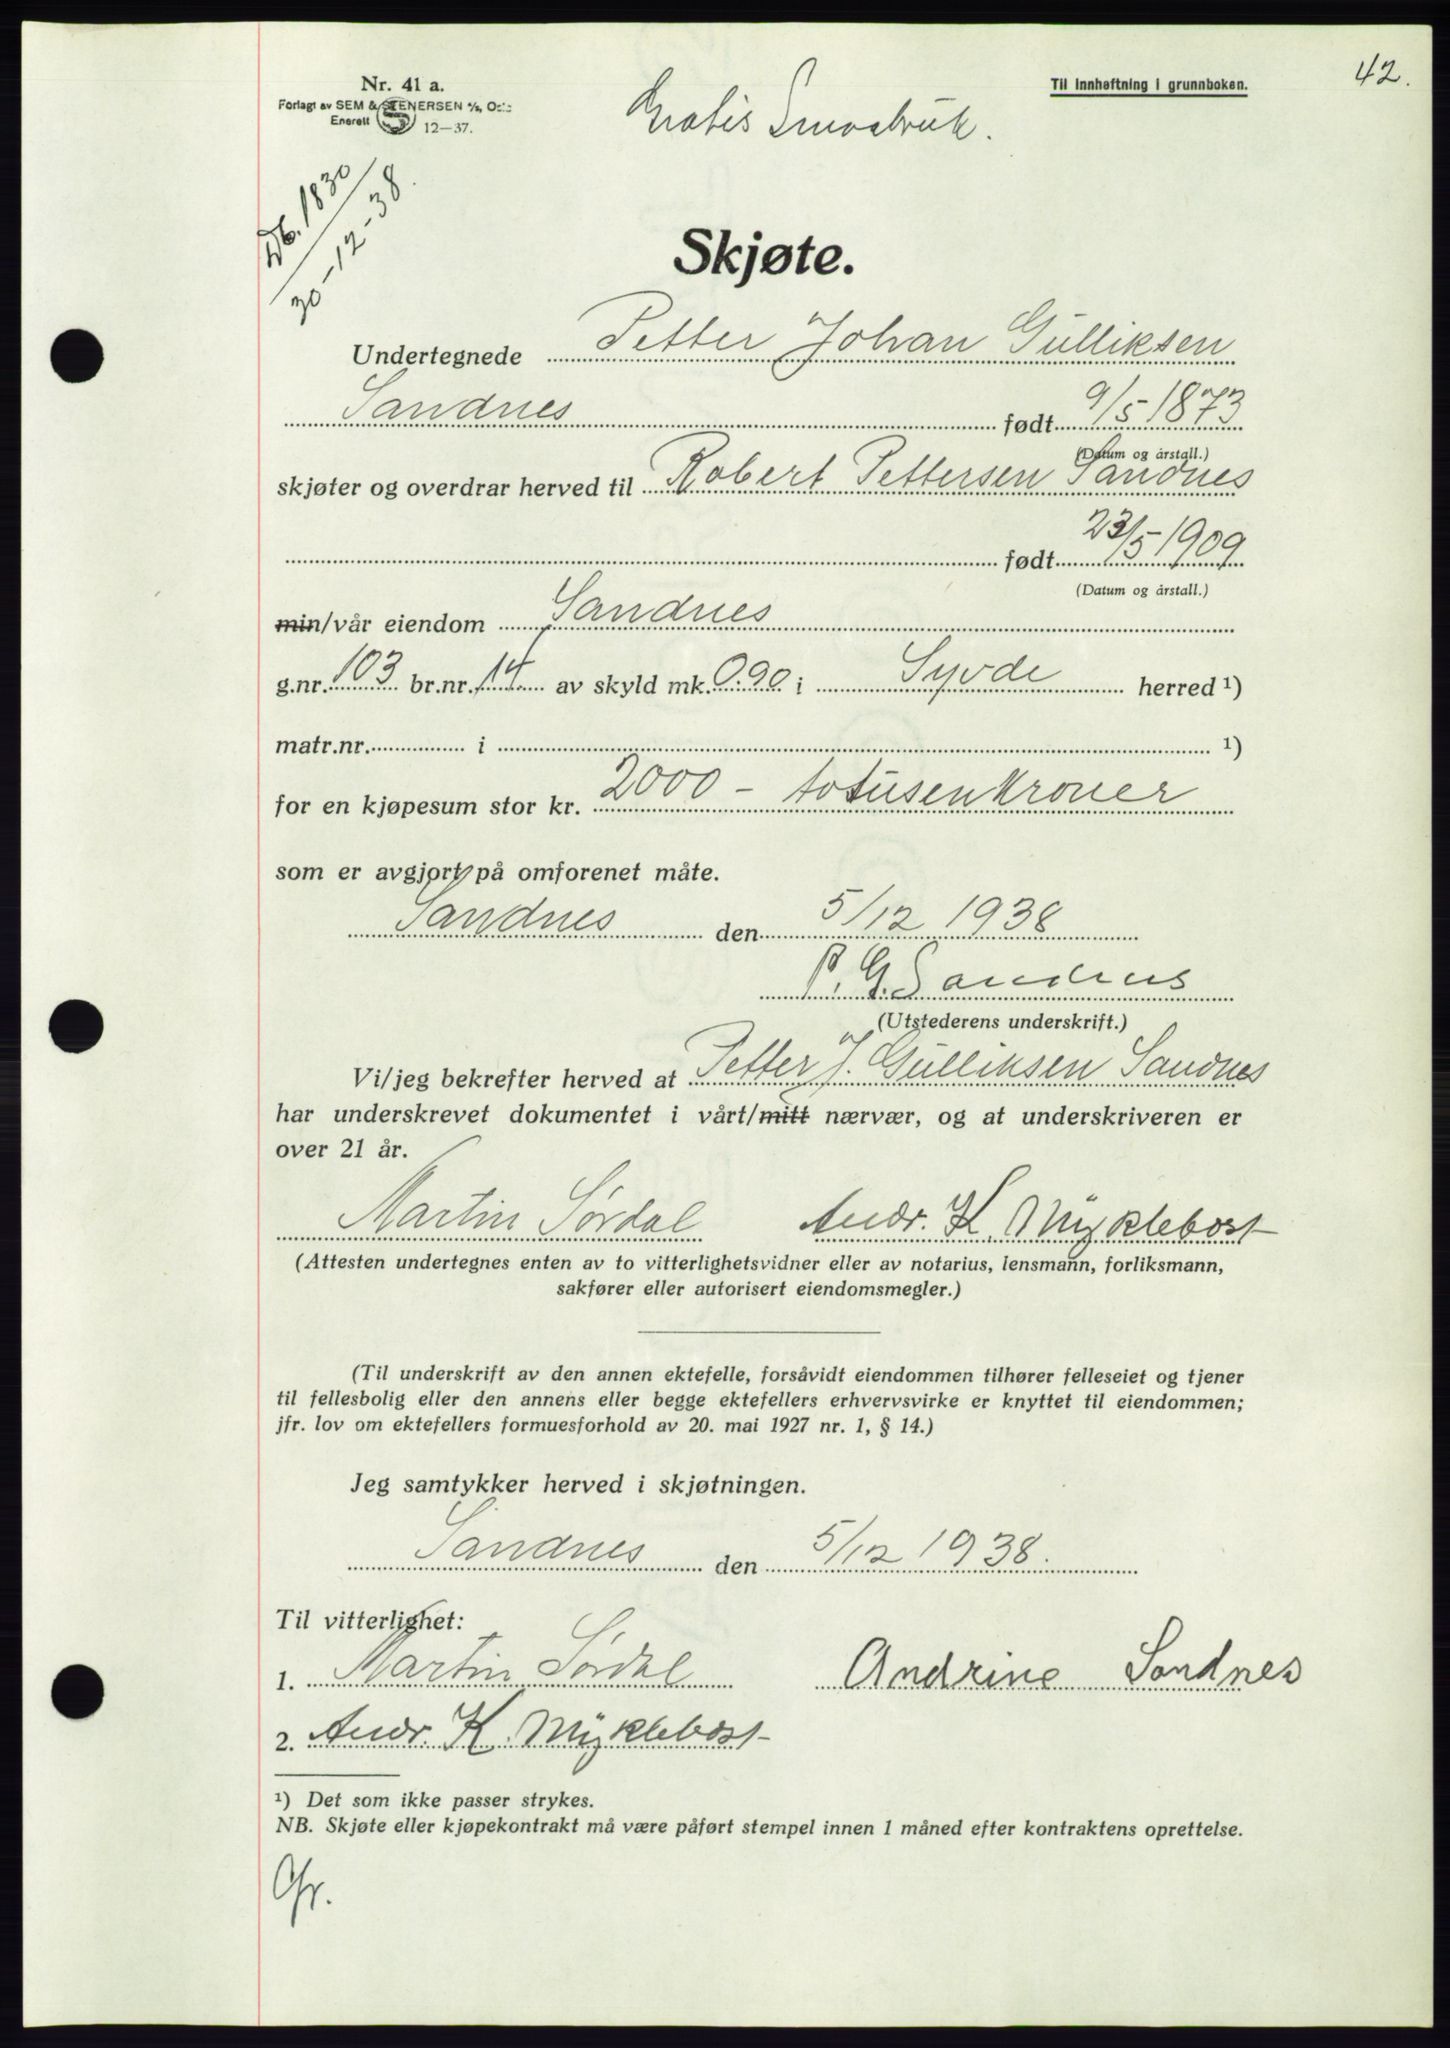 42.
Nr. 41 a.
Til innheftning i grunnboken.
Forlagt av SEM & STENERSEN A/S, Oslo
Enerett
12—37.
Gratis Småbruk.
Db. 1830
30-12-38.
Skjøte.
Undertegnede Petter Johan Gulliksen
Sandnes født 9/5 1873
(Datum og årstall.)
skjøter og overdrar herved til Robert Pettersen Sandnes
født 23/5-1909
(Datum og årstall.)
min/vår eiendom Sandnes
g.nr. 103 br.nr. 14 av skyld mk. 0.90 i Syvde herred ¹)
matr.nr. i ¹)
for en kjøpesum stor kr. 2000 - totusenkroner
som er avgjort på omforenet måte.
Sandnes den 5/12 1938
P. G. Sandnes
(Utstederens underskrift.)
Vi/jeg bekrefter herved at Petter J. Gulliksen Sandnes
har underskrevet dokumentet i vårt/mitt nærvær, og at underskriveren er
over 21 år.
Martin Sørdal Andr. K. Myklebost
(Attesten undertegnes enten av to vitterlighetsvidner eller av notarius, lensmann, forliksmann,
sakfører eller autorisert eiendomsmegler.)
(Til underskrift av den annen ektefelle, forsåvidt eiendommen tilhører felleseiet og tjener
til fellesbolig eller den annens eller begge ektefellers erhvervsvirke er knyttet til eiendommen;
jfr. lov om ektefellers formuesforhold av 20. mai 1927 nr. 1, § 14.)
Jeg samtykker herved i skjøtningen.
Sandnes den 5/12 1938.
Til vitterlighet:
1. Martin Sørdal Andrine Sandnes
2. Andr. K. Myklebost
¹) Det som ikke passer strykes.
NB. Skjøte eller kjøpekontrakt må være påført stempel innen 1 måned efter kontraktens oprettelse.